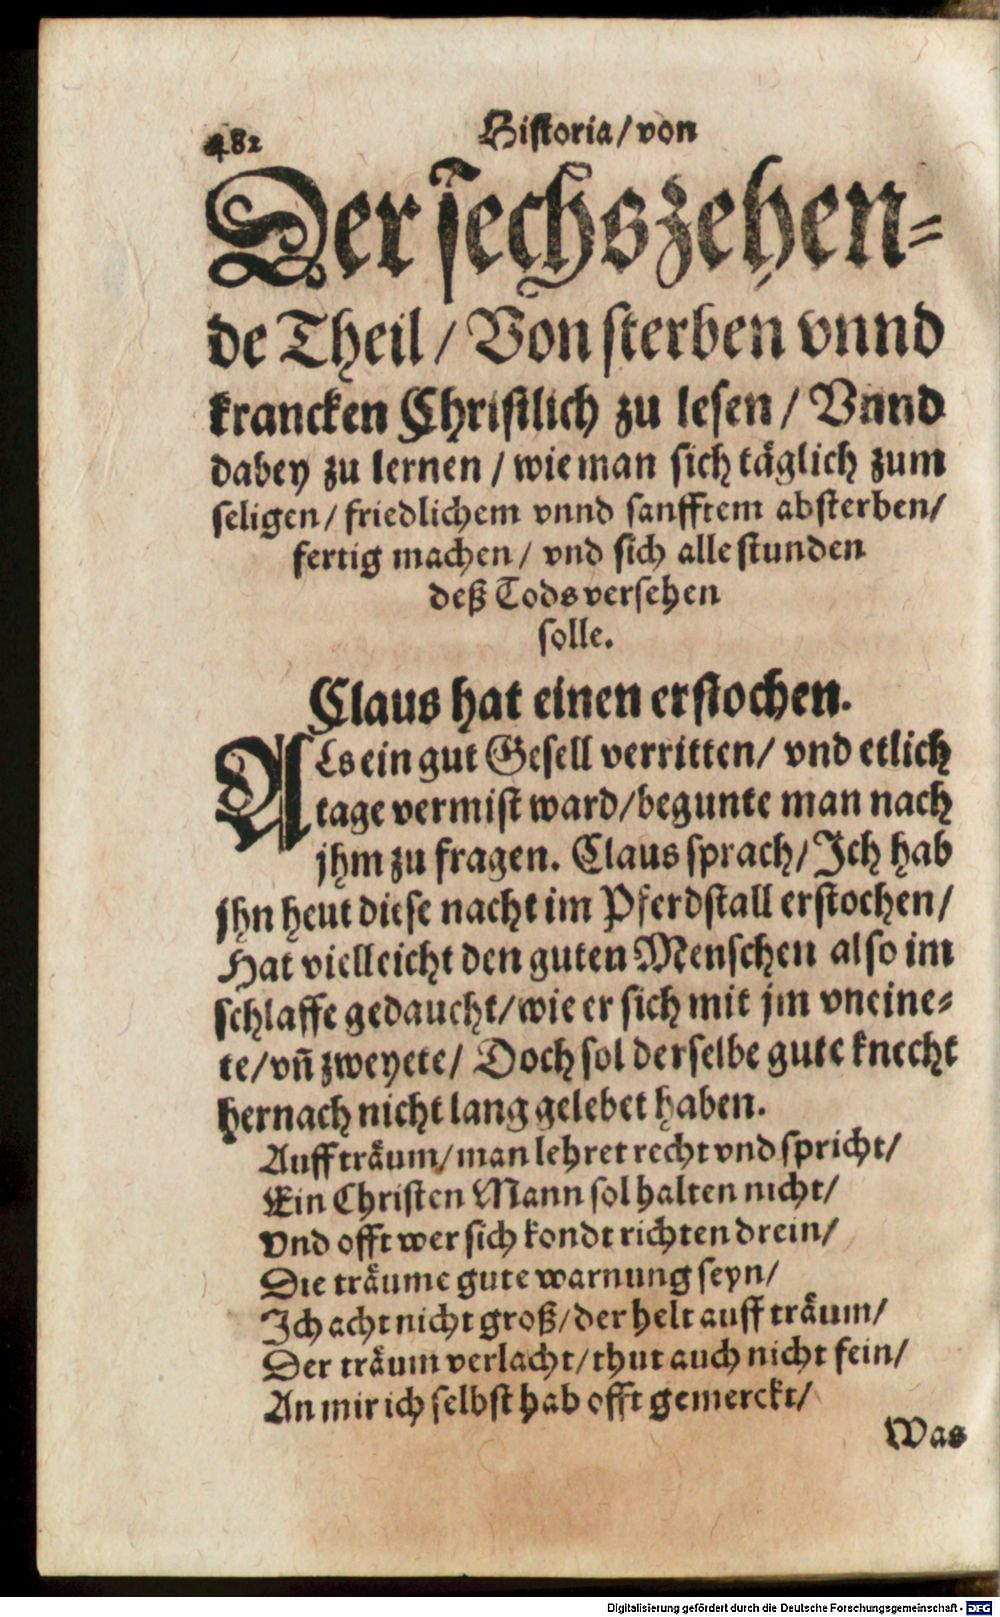 482
Historia/ von
Der sechszehen-
de Theil / Von sterben vnnd
krancken Christlich zu lesen / Vnnd
dabey zu lernen / wie man sich täglich zum
seligen/ friedlichem vnnd sanfftem absterben/
fertig machen/ vnd sich alle stunden
deß Tods versehen
solle.
Claus hat einen erstochen.
ALs ein gut Gesell verritten/ vnd etlich
tage vermist ward/begunte man nach
jhm zu fragen. Claus sprach/ Ich hab
jhn heut diese nacht im Pferdstall erstochen/
Hat vielleicht den guten Menschen also im
schlaffe gedaucht/wie er sich mit jm vneine-
te/vñ zweyete/ Doch sol derselbe gute knecht
hernach nicht lang gelebet haben.
Auff träum/man lehret recht vnd spricht/
Ein Christen Mann sol halten nicht/
Vnd offt wer sich kondt richten drein/
Die träume gute warnung seyn/
Ich acht nicht groß/der helt auff träum/
Der träum verlacht/thut auch nicht fein/
An mir ich selbst hab offt gemerckt/
Was
Digitalisierung gefördert durch die Deutsche Forschungsgemeinschaft - DFG